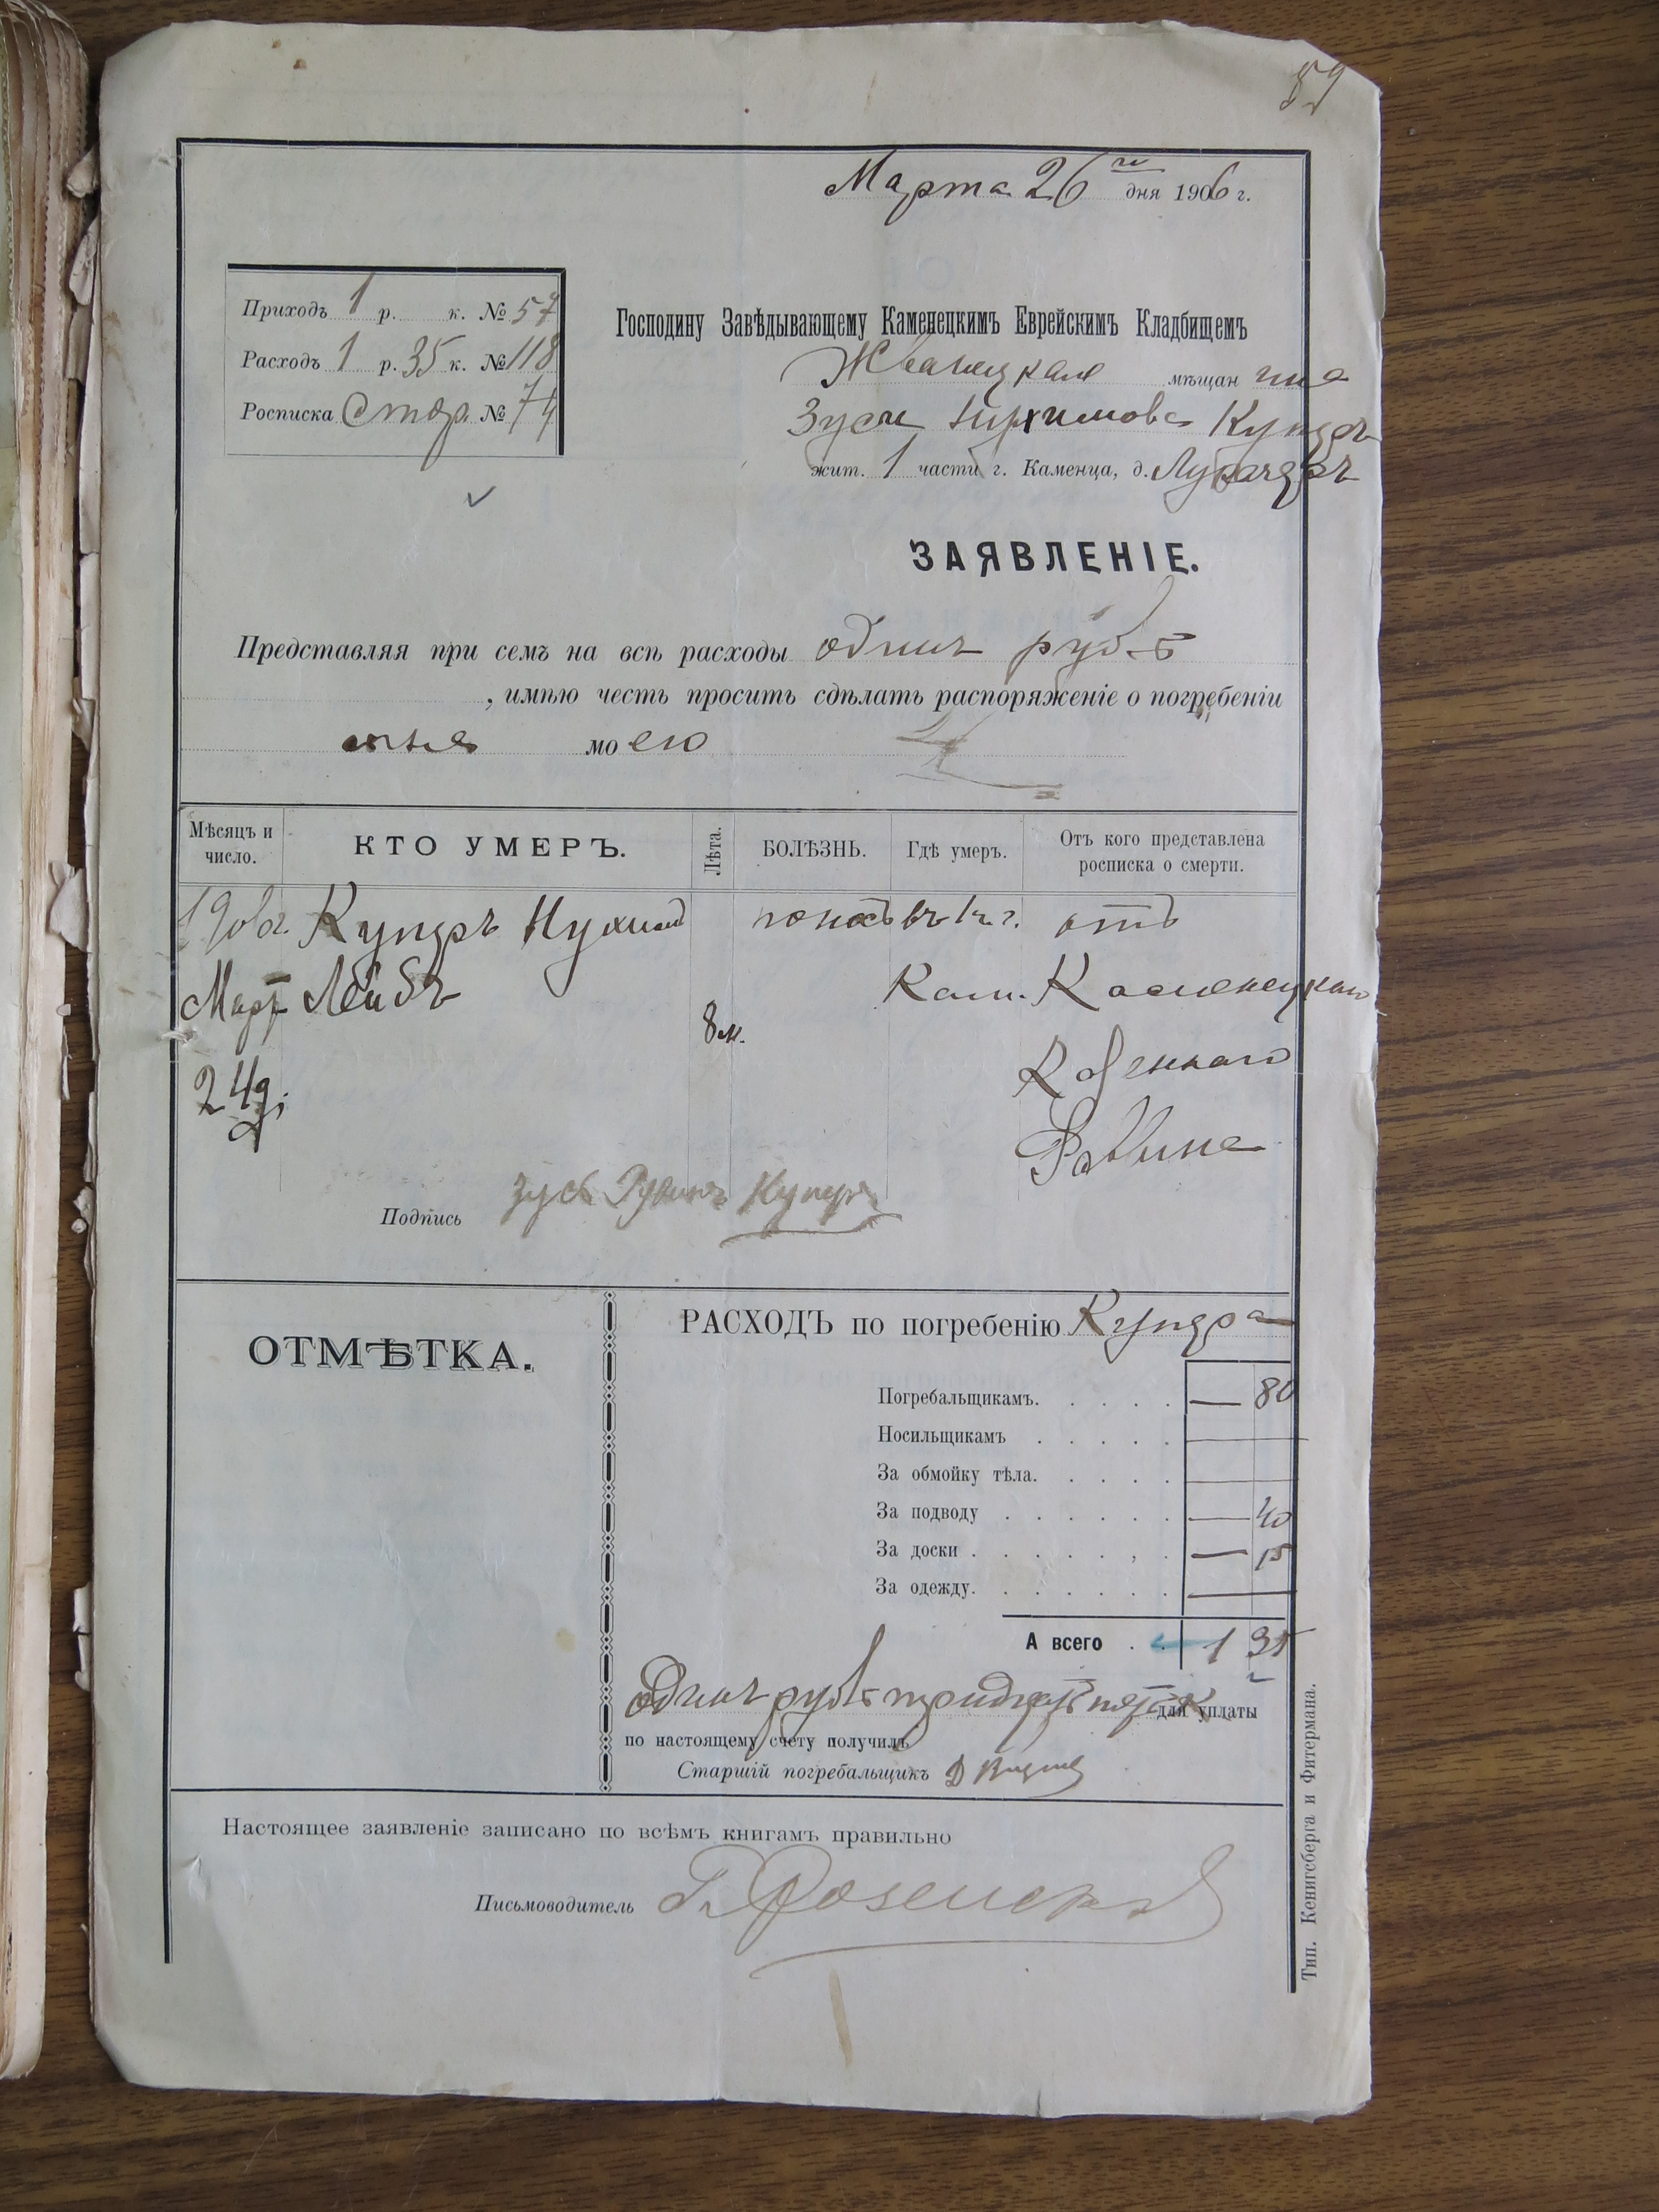 59
Марта 26 го дня 1906 г.
Приходъ 1 р. к. № 57
Расходъ 1 р. 35 к. № 118
Росписка № 74
Господину Завѣдывающему Каменецкимъ Еврейскимъ Кладбищемъ
Жванецкаго мѣщанина
Зуси Купера
жит. 1 части г. Каменца, д.
ЗАЯВЛЕНІЕ.
Представляя при семъ на всѣ расходы одинъ рубль
, имѣю честь просить сдѣлать распоряженіе о погребеніи
сына моего
Мѣсяцъ и число.
КТО УМЕРЪ.
Лѣта.
БОЛѢЗНЬ.
Гдѣ умеръ.
Отъ кого представлена росписка о смерти.
190 Куперъ Нухимъ понос въ отъ
Март Лейбъ Кам. Каменецкаго
8 м.
24 д. Казеннаго
Равина
Подпись Зусь Куперъ
ОТМѢТКА.
РАСХОДЪ по погребенію Купера
Погребальщикамъ. — 80
Носильщикамъ
За обмойку тѣла.
За подводу — 40
За доски — 15
За одежду. —
А всего 1 35
одинъ рубль тридцать пять к для уплаты
по настоящему счету получилъ
Старшій погребальщикъ Д
Настоящее заявленіе записано по всѣмъ книгамъ правильно
Письмоводитель
Тип. Кенигсберга и Фитермана.